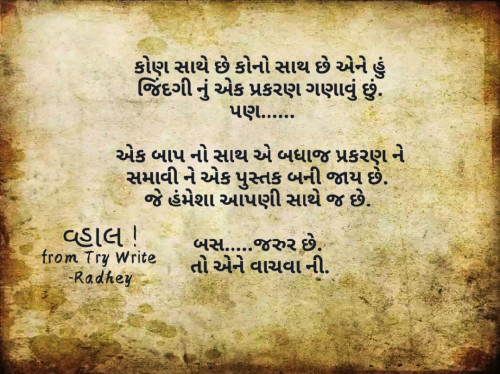 કોણ સાથે છે કોનો સાથ છે એને હું
જિંદગી નું એક પ્રકરણ ગણાવું છું.
પણ......
એક બાપ નો સાથ એ બધાજ પ્રકરણ ને
સમાવી ને એક પુસ્તક બની જાય છે.
જે હંમેશા આપણી સાથે જ છે.
બસ.....જરુર છે.
તો એને વાચવા ની.
વ્હાલ !
from Try Write
-Radhey